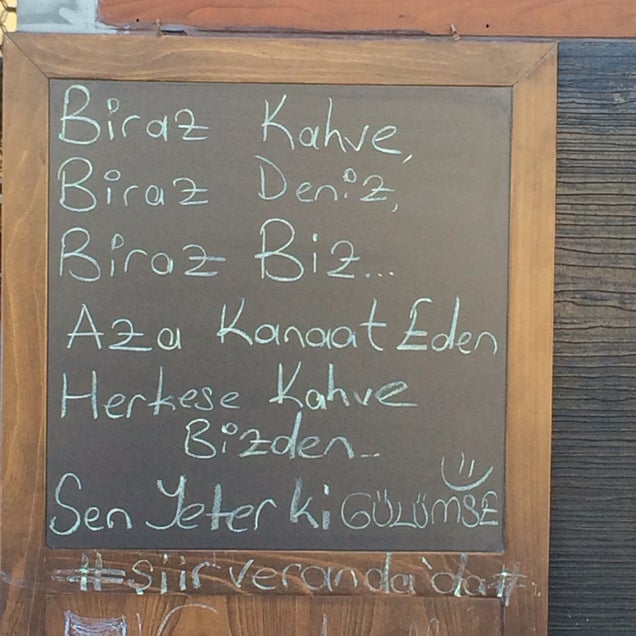 Biraz Kahve,
Biraz Deniz,
Biraz Biz...
Aza Kanaat Eden
Herkese Kahve
Bizden..
Sen Yeter ki GÜLÜMSE
#şiirveranda'da#